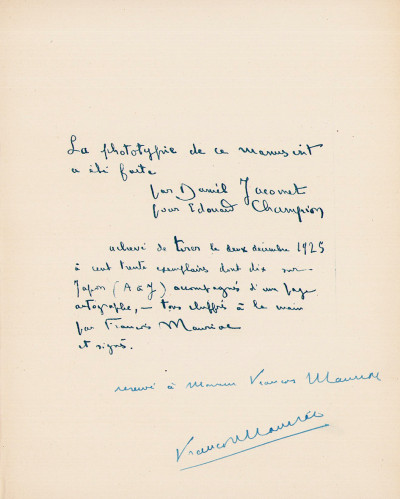 La phototypie de ce manuscrit
a été faite
par Daniel Jacomet
pour Edouard Champion
achevé de tirer le deux décembre 1925
à cent trente exemplaires dont dix sur
Japon (A à J) accompagnés d'un page
autographe, — tous chiffrés à la main
par François Mauriac
et signés.
réservé à Monsieur François Mauriac
François Mauriac